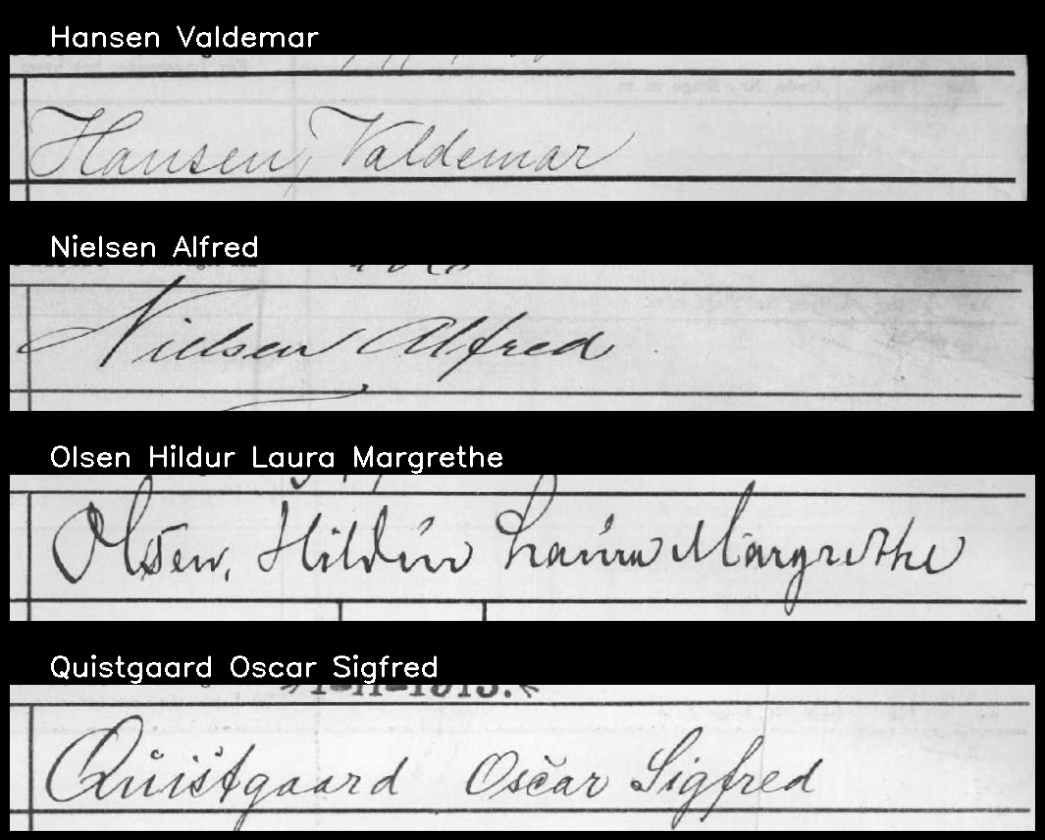 Hansen Valdemar
Hansen, Valdemar
Nielsen Alfred
Nielsen Alfred
Olsen Hildur Laura Margrethe
Olsen, Hildur Laura Margrethe
Quistgaard Oscar Sigfred
Quistgaard Oscar Sigfred